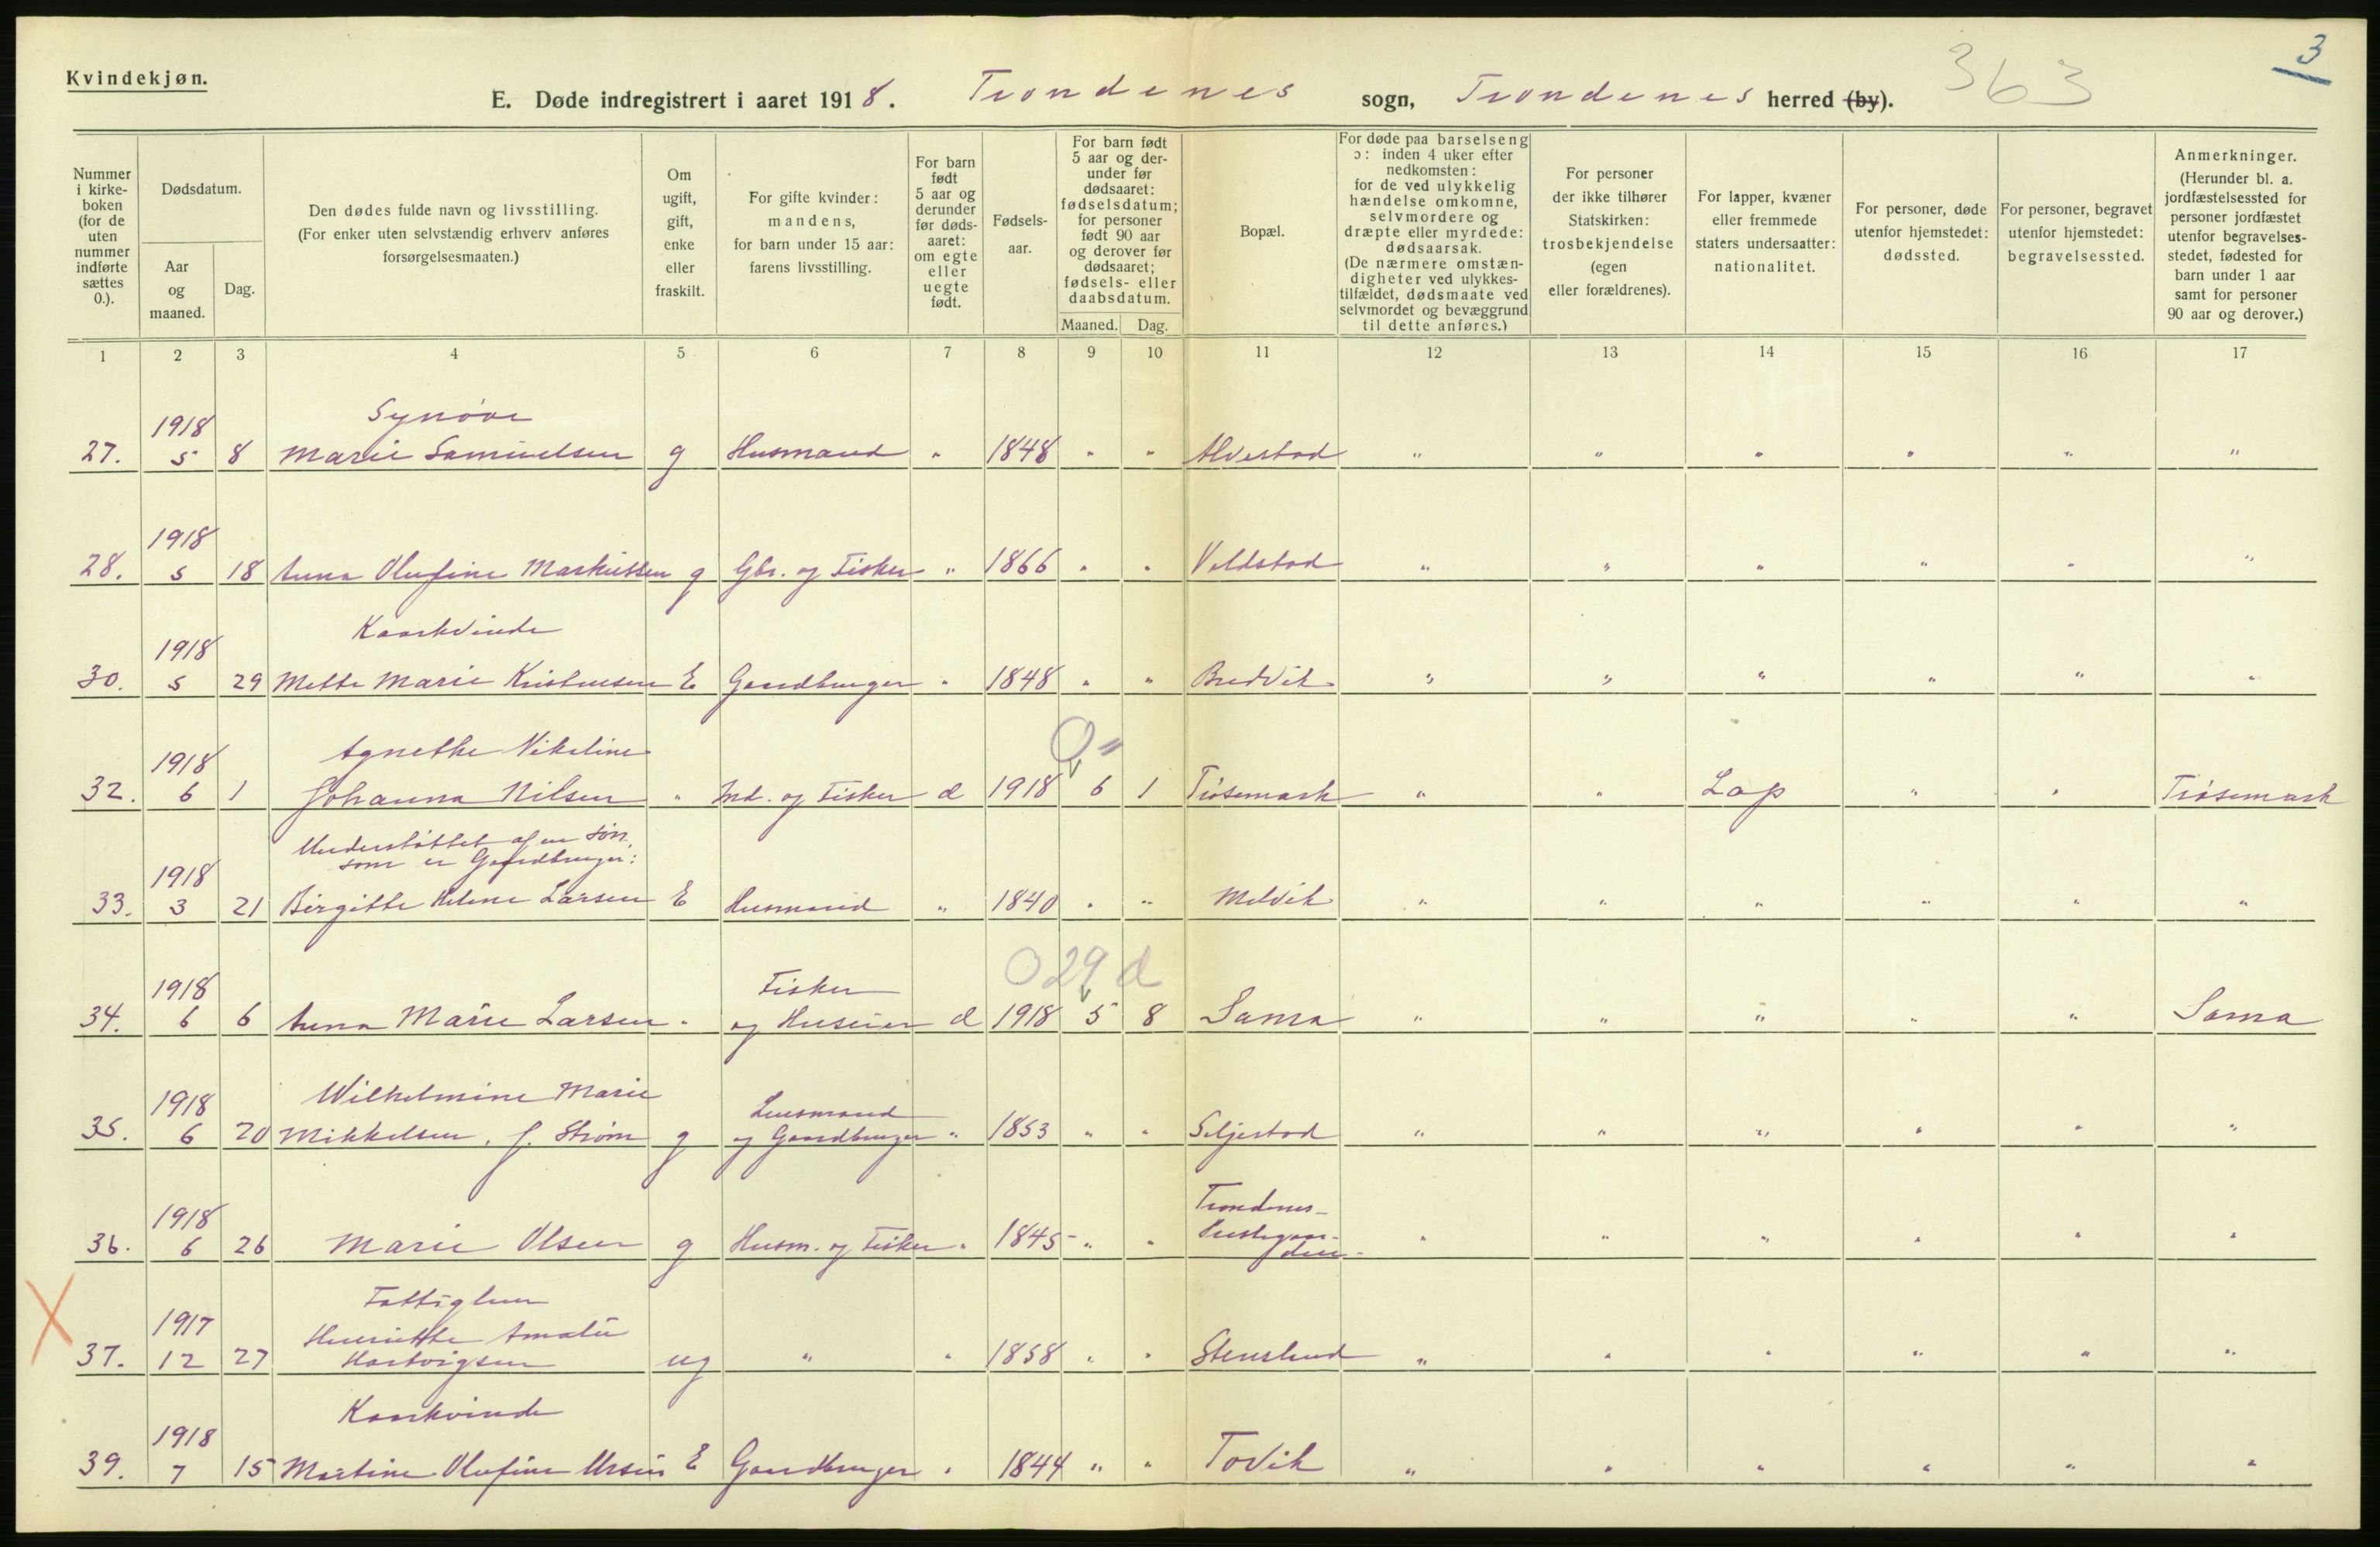 Kvindekjøn.
3
363
E. Døde indregistrert i aaret 1918. Trondenes sogn, Trondenes herred (by).
Nummer i kirkeboken (for de uten nummer indførte sættes 0.).
Dødsdatum.
Aar og maaned.
Dag.
Den dødes fulde navn og livsstilling. (For enker uten selvstændig erhverv anføres forsørgelsesmaaten.)
Om ugift, gift, enke eller fraskilt.
For gifte kvinder: mandens, for barn under 15 aar: farens livsstilling.
For barn født 5 aar og derunder før dødsaaret: om egte eller uegte født.
Fødselsaar.
For barn født 5 aar og derunder før dødsaaret: fødselsdatum; for personer født 90 aar og derover før dødsaaret; fødsels- eller daabsdatum.
Maaned. Dag.
Bopæl.
For døde paa barselseng ɔ: inden 4 uker efter nedkomsten: for de ved ulykkelig hændelse omkomne, selvmordere og dræpte eller myrdede: dødsaarsak. (De nærmere omstændigheter ved ulykkestilfældet, dødsmaate ved selvmordet og bevæggrund til dette anføres.)
For personer der ikke tilhører Statskirken: trosbekjendelse (egen eller forældrenes).
For lapper, kvæner eller fremmede staters undersaatter: nationalitet.
For personer, døde utenfor hjemstedet: dødssted.
For personer, begravet utenfor hjemstedet: begravelsessted.
Anmerkninger. (Herunder bl. a. jordfæstelsessted for personer jordfæstet utenfor begravelsesstedet, fødested for barn under 1 aar samt for personer 90 aar og derover.)
1 2 3 4 5 6 7 8 9 10 11 12 13 14 15 16 17
1918 Synøve
27. 5 8 Marie Samuelsen g Husmand " 1848 " " Alvestad " " " " " "
1918
28. 5 18 Anna Olufine Markussen g Gbr. og Fisker " 1866 " " Voldstad " " " " " "
1918 Kaarkvinde
30. 5 29 Mette Marie Kristensen E Gaardbruger " 1848 " " Bredvik " " " " " "
1918 Agnethe Nikoline 0 "
32. 6 1 Johanna Nilsen " Ind. og Fisker d 1918 6 1 Trøsemark " " Lap " " Trøsemark
Understøttet af en søn,
1918 som er Gaardbruger:
33. 3 21 Birgitte Helene Larsen E Husmand " 1840 " " Melvik " " " " " "
1918 Fisker 0 29 d
34. 6 6 Anna Marie Larsen " og Huseier d 1918 5 8 Sama " " " " " Sama
1918 Wilhelmine Marie Lensmand
35. 6 20 Mikkelsen, f. Strøm g og Gaardbruger " 1853 " " Seljestad " " " " " "
1918 Trondenes-
36. 6 26 Marie Olsen g Husm. og Fisker " 1845 " " " " " " " "
Fattiglem
X 1917 Henriette Amalie
37. 12 27 Hartvigsen ug " " 1858 " " Stensland " " " " " "
1918 Kaarkvinde
39. 7 15 Martine Olufine Ursin E Gaardbruger " 1844 " " Tovik " " " " " "